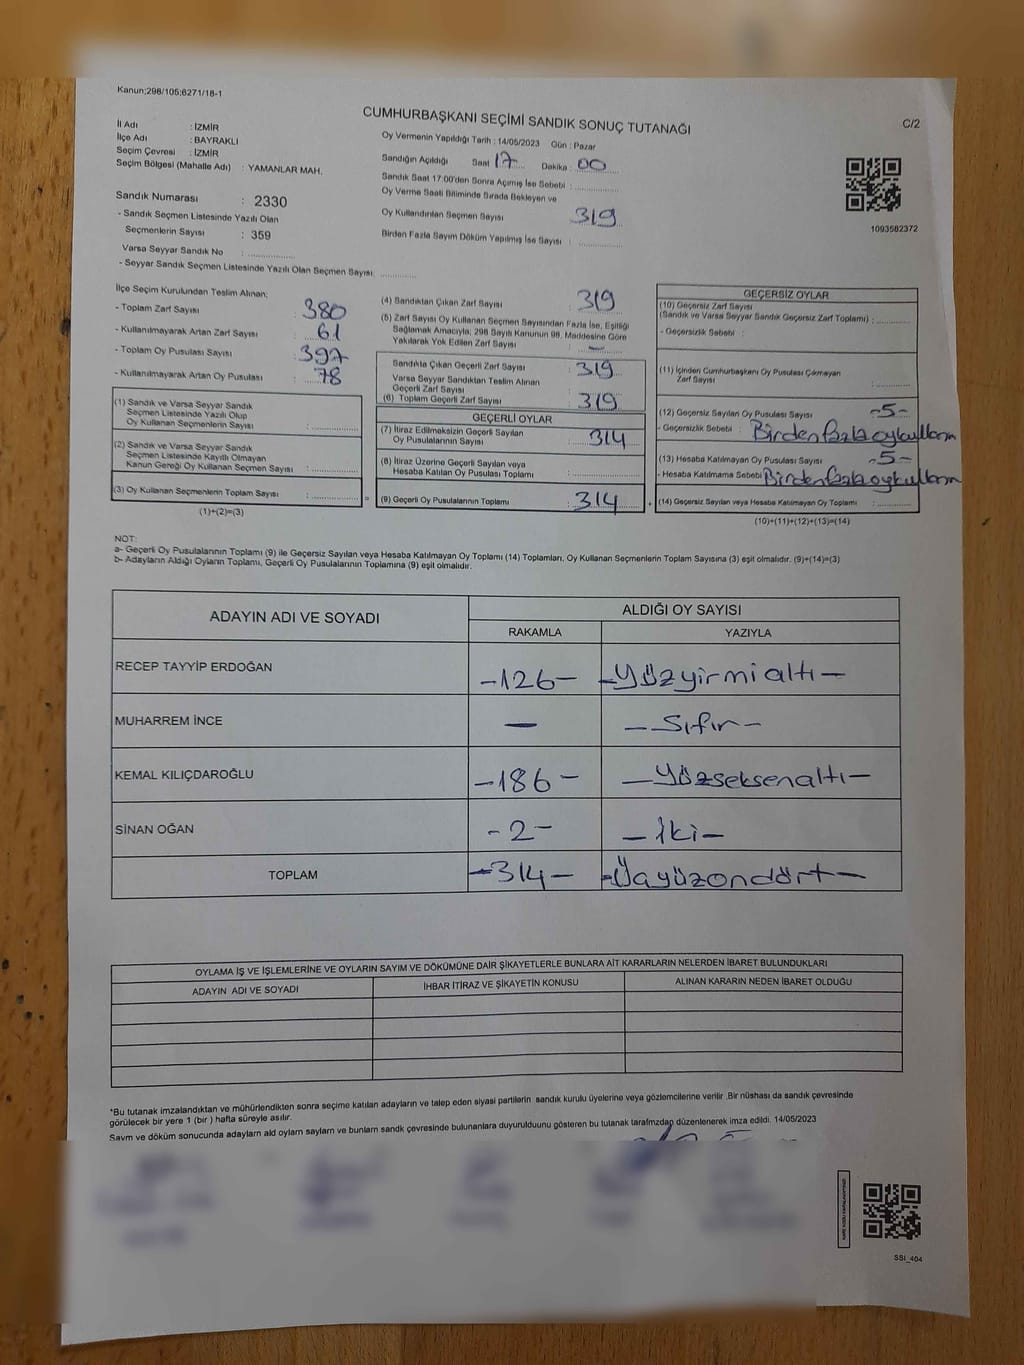 Kanun;298/105;6271/18-1
CUMHURBAŞKANI SEÇİMİ SANDIK SONUÇ TUTANAĞI
C/2
İl Adı : İZMİR
İlçe Adı : BAYRAKLI
Seçim Çevresi : İZMİR
Seçim Bölgesi (Mahalle Adı) : YAMANLAR MAH.
Sandık Numarası : 2330
- Sandık Seçmen Listesinde Yazılı Olan
Seçmenlerin Sayısı : 359
Varsa Seyyar Sandık No : ..............
- Seyyar Sandık Seçmen Listesinde Yazılı Olan Seçmen Sayısı: ............
Oy Vermenin Yapıldığı Tarih : 14/05/2023 Gün : Pazar
Sandığın Açıldığı Saat 17 Dakika : 00
Sandık Saat 17:00'den Sonra Açılmış İse Sebebi : ..............
Oy Verme Saati Bitiminde Sırada Bekleyen ve
Oy Kullandırılan Seçmen Sayısı : 319
Birden Fazla Sayım Döküm Yapılmış İse Sayısı : ..............
1093582372
İlçe Seçim Kurulundan Teslim Alınan;
- Toplam Zarf Sayısı : 380
- Kullanılmayarak Artan Zarf Sayısı : 61
- Toplam Oy Pusulası Sayısı : 397
- Kullanılmayarak Artan Oy Pusulası : 78
(1) Sandık ve Varsa Seyyar Sandık
Seçmen Listesinde Yazılı Olup
Oy Kullanan Seçmenlerin Sayısı : ..............
(2) Sandık ve Varsa Seyyar Sandık
Seçmen Listesinde Kayıtlı Olmayan
Kanun Gereği Oy Kullanan Seçmen Sayısı : ..............
(3) Oy Kullanan Seçmenlerin Toplam Sayısı : ..............
(1)+(2)=(3)
(4) Sandıktan Çıkan Zarf Sayısı : 319
(5) Zarf Sayısı Oy Kullanan Seçmen Sayısından Fazla İse, Eşitliği
Sağlamak Amacıyla; 298 Sayılı Kanunun 98. Maddesine Göre
Yakılarak Yok Edilen Zarf Sayısı : —
Sandıkta Çıkan Geçerli Zarf Sayısı : 319
Varsa Seyyar Sandıktan Teslim Alınan
Geçerli Zarf Sayısı
(6) Toplam Geçerli Zarf Sayısı : 319
GEÇERLİ OYLAR
(7) İtiraz Edilmeksizin Geçerli Sayılan
Oy Pusulalarının Sayısı : 314
(8) İtiraz Üzerine Geçerli Sayılan veya
Hesaba Katılan Oy Pusulası Toplamı : ..............
= (9) Geçerli Oy Pusulalarının Toplamı : 314 +
GEÇERSİZ OYLAR
(10) Geçersiz Zarf Sayısı
(Sandık ve Varsa Seyyar Sandık Geçersiz Zarf Toplamı) : ............
- Geçersizlik Sebebi :
(11) İçinden Cumhurbaşkanı Oy Pusulası Çıkmayan
Zarf Sayısı : ............
(12) Geçersiz Sayılan Oy Pusulası Sayısı -5-
- Geçersizlik Sebebi : Birden fazla oy kullanım
(13) Hesaba Katılmayan Oy Pusulası Sayısı -5-
- Hesaba Katılmama Sebebi Birden fazla oy kullanım
(14) Geçersiz Sayılan veya Hesaba Katılmayan Oy Toplamı : ............
(10)+(11)+(12)+(13)=(14)
NOT:
a- Geçerli Oy Pusulalarının Toplamı (9) ile Geçersiz Sayılan veya Hesaba Katılmayan Oy Toplamı (14) Toplamları, Oy Kullanan Seçmenlerin Toplam Sayısına (3) eşit olmalıdır. (9)+(14)=(3)
b- Adayların Aldığı Oyların Toplamı, Geçerli Oy Pusulalarının Toplamına (9) eşit olmalıdır.
ADAYIN ADI VE SOYADI ALDIĞI OY SAYISI
RAKAMLA YAZIYLA
RECEP TAYYİP ERDOĞAN -126- -Yüzyirmi altı-
MUHARREM İNCE — -Sıfır-
KEMAL KILIÇDAROĞLU -186- -Yüzseksenaltı-
SİNAN OĞAN -2- -İki-
TOPLAM -314- -Üçyüzondört-
OYLAMA İŞ VE İŞLEMLERİNE VE OYLARIN SAYIM VE DÖKÜMÜNE DAİR ŞİKAYETLERLE BUNLARA AİT KARARLARIN NELERDEN İBARET BULUNDUKLARI
ADAYIN ADI VE SOYADI İHBAR İTİRAZ VE ŞİKAYETİN KONUSU ALINAN KARARIN NEDEN İBARET OLDUĞU
*Bu tutanak imzalandıktan ve mühürlendikten sonra seçime katılan adayların ve talep eden siyasi partilerin sandık kurulu üyelerine veya gözlemcilerine verilir .Bir nüshası da sandık çevresinde
görülecek bir yere 1 (bir ) hafta süreyle asılır.
Sayım ve döküm sonucunda adayların aldı oyların sayıları ve bunların sandk çevresinde bulunanlara duyurulduunu gösteren bu tutanak tarafmzdan düzenlenerek imza edildi. 14/05/2023
SSI_404